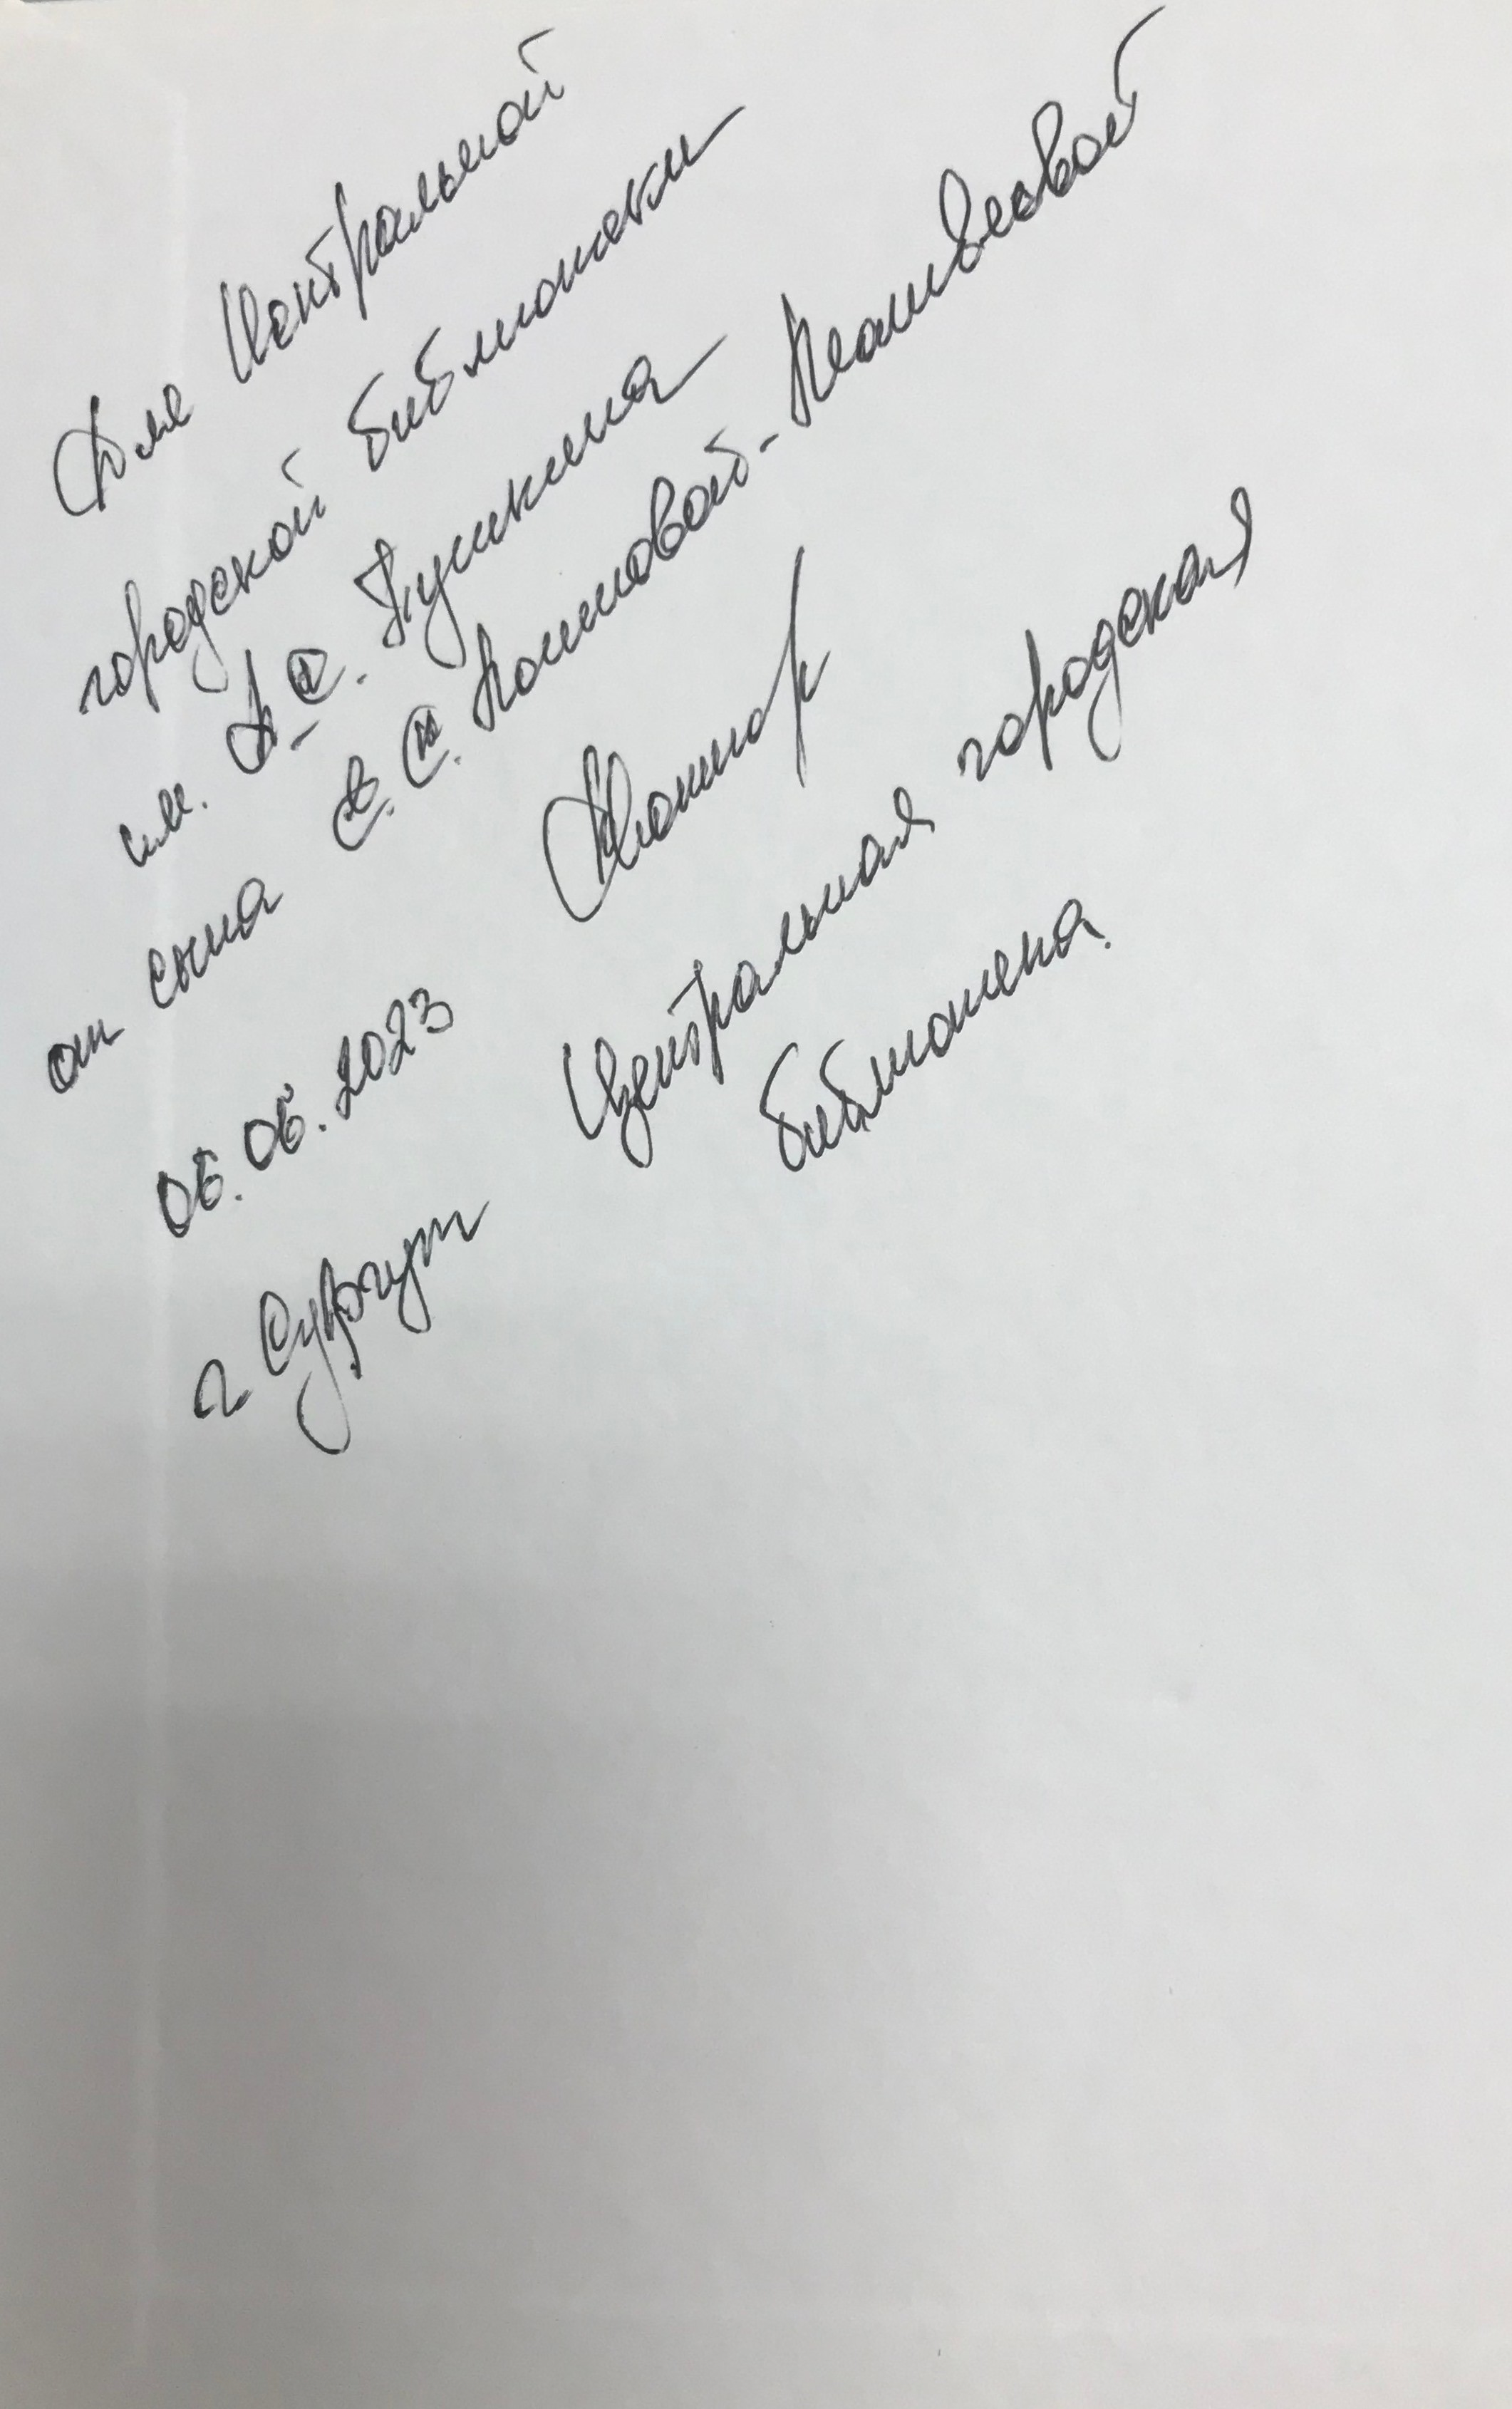 Для Центральной
городской библиотеки
им. А.С. Пушкина
от сына
06.06.2023
г Сургут Центральная городская
библиотека.